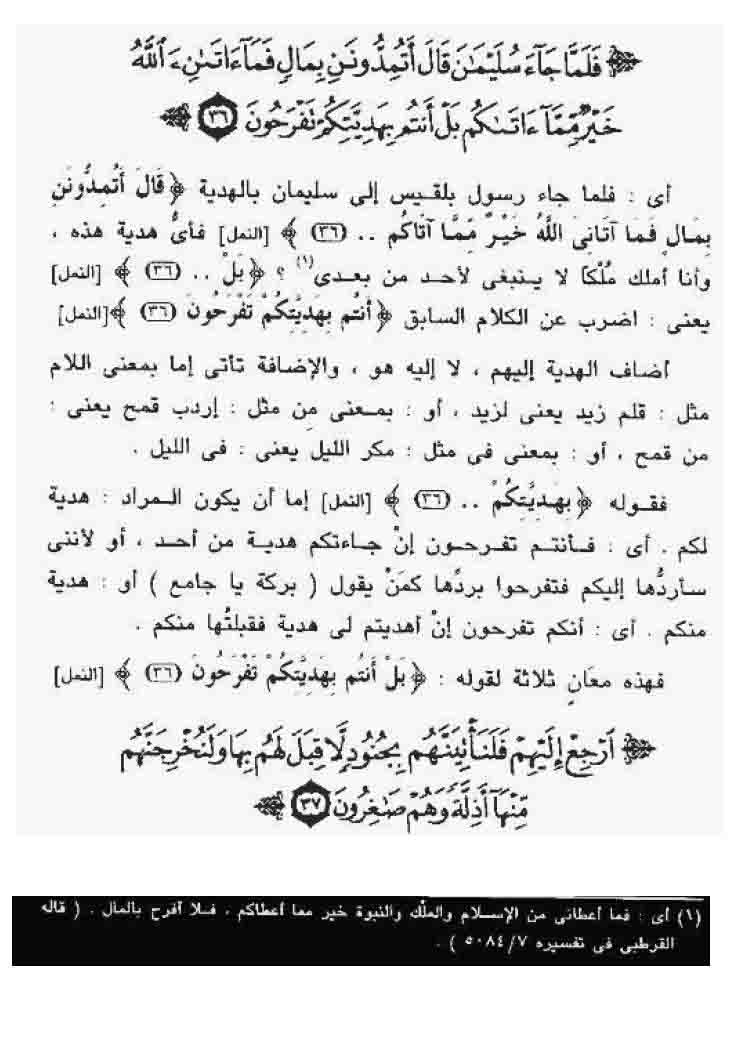 فَلَمَّا جَآءَ سُلَيْمَٰنَ قَالَ أَتُمِدُّونَنِ بِمَالٍ فَمَآ ءَاتَىٰنِۦَ ٱللَّهُ
خَيْرٌ مِّمَّآ ءَاتَىٰكُم بَلْ أَنتُم بِهَدِيَّتِكُمْ تَفْرَحُونَ ٣٦
أى : فلما جاء رسول بلقيس إلى سليمان بالهدية ﴿ قَالَ أَتُمِدُّونَنِ
بِمَالٍ فَمَا آتَانِىَ اللَّهُ خَيْرٌ مِّمَّا آتَاكُم .. (٣٦) ﴾ [النمل] فأىُّ هدية هذه ،
وأنا أملك مُلْكاً لا ينبغى لأحد من بعدى(١) ؟ ﴿ بَلْ .. (٣٦) ﴾ [النمل]
يعنى : اضرب عن الكلام السابق ﴿ أَنتُم بِهَدِيَّتِكُمْ تَفْرَحُونَ (٣٦) ﴾ [النمل]
أضاف الهدية إليهم ، لا إليه هو ، والإضافة تأتى إما بمعنى اللام
مثل : قلم زيد يعنى لزيد ، أو : بمعنى مِن مثل : إردب قمح يعنى :
من قمح ، أو : بمعنى فى مثل : مكر الليل يعنى : فى الليل .
فقوله ﴿ بِهَدِيَّتِكُمْ .. (٣٦) ﴾ [النمل] إما أن يكون المراد : هدية
لكم . أى : فأنتم تفرحون إنْ جاءتكم هدية من أحد ، أو لأننى
سأردُّها إليكم فتفرحوا بردِّها كمَنْ يقول ( بركة يا جامع ) أو : هدية
منكم . أى : أنكم تفرحون إنْ أهديتم لى هدية فقبلتُها منكم .
فهذه معَانٍ ثلاثة لقوله : ﴿ بَلْ أَنتُم بِهَدِيَّتِكُمْ تَفْرَحُونَ (٣٦) ﴾ [النمل]
ٱرْجِعْ إِلَيْهِمْ فَلَنَأْتِيَنَّهُم بِجُنُودٍ لَّا قِبَلَ لَهُم بِهَا وَلَنُخْرِجَنَّهُم
مِّنْهَآ أَذِلَّةً وَهُمْ صَٰغِرُونَ ٣٧
(١) أى : فما أعطانى من الإسلام والملْك والنبوة خير مما أعطاكم ، فلا أفرح بالمال . ( قاله
القرطبى فى تفسيره ٥٠٨٤/٧ ) .